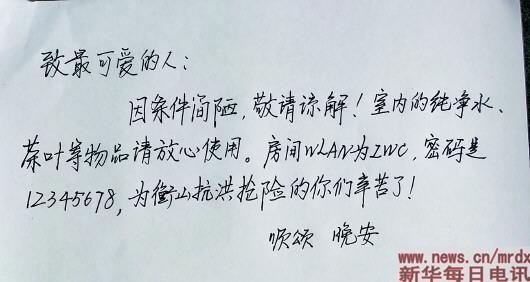 致最可爱的人:
因条件简陋,敬请谅解!室内的纯净水、
茶叶等物品请放心使用。房间WLAN为ZWC,密码是
12345678,为衡山抗洪抢险的你们辛苦了!
顺颂 晚安
www.news.cn/mrdx
新华每日电讯